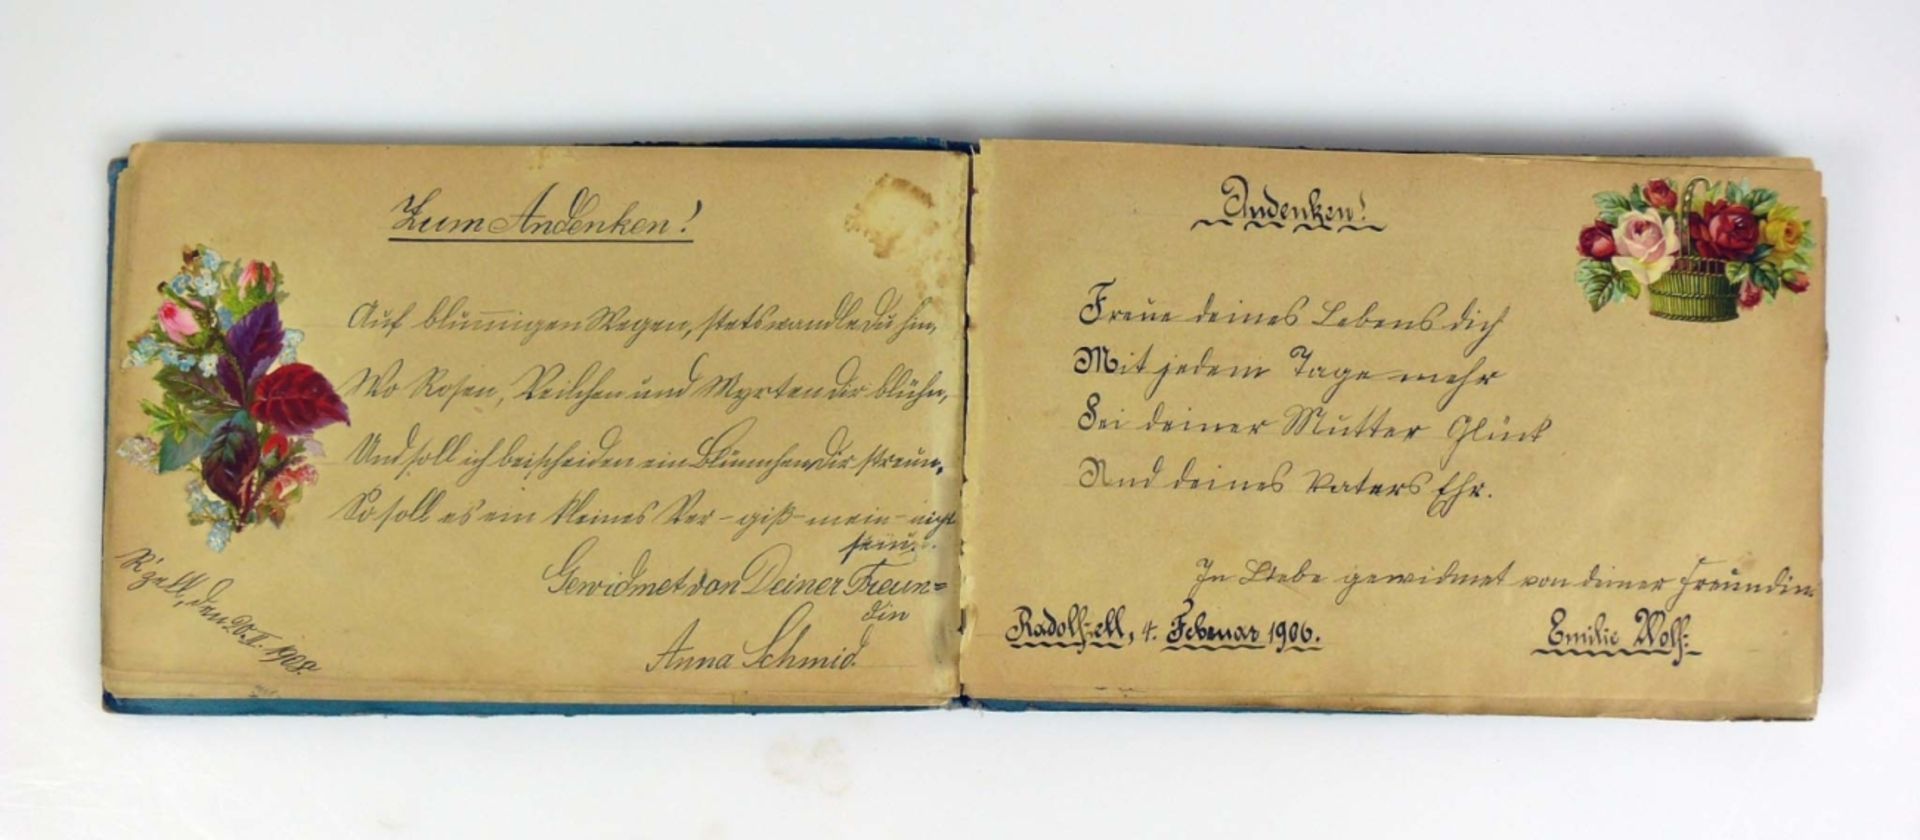 Zum Andenken!
Auf blumigen Wegen, stets wandle Du hin,
Wo Rosen, Veilchen und Myrten dir blühn,
Und soll ich bescheiden ein Blümchen Dir streun,
So soll es ein kleines Ver-giß-mein-nicht
sein.
Gewidmet von Deiner Freun=
din
Anna Schmid.
R'zell, den 20.II. 1908.
Andenken!
Freue deines Lebens dich
Mit jedem Tage mehr
Sei deiner Mutter Glück
Und deines Vaters Ehr.
In Liebe gewidmet von deiner Freundin
Radolfzell, 4. Februar 1906.
Emilie Wolf.